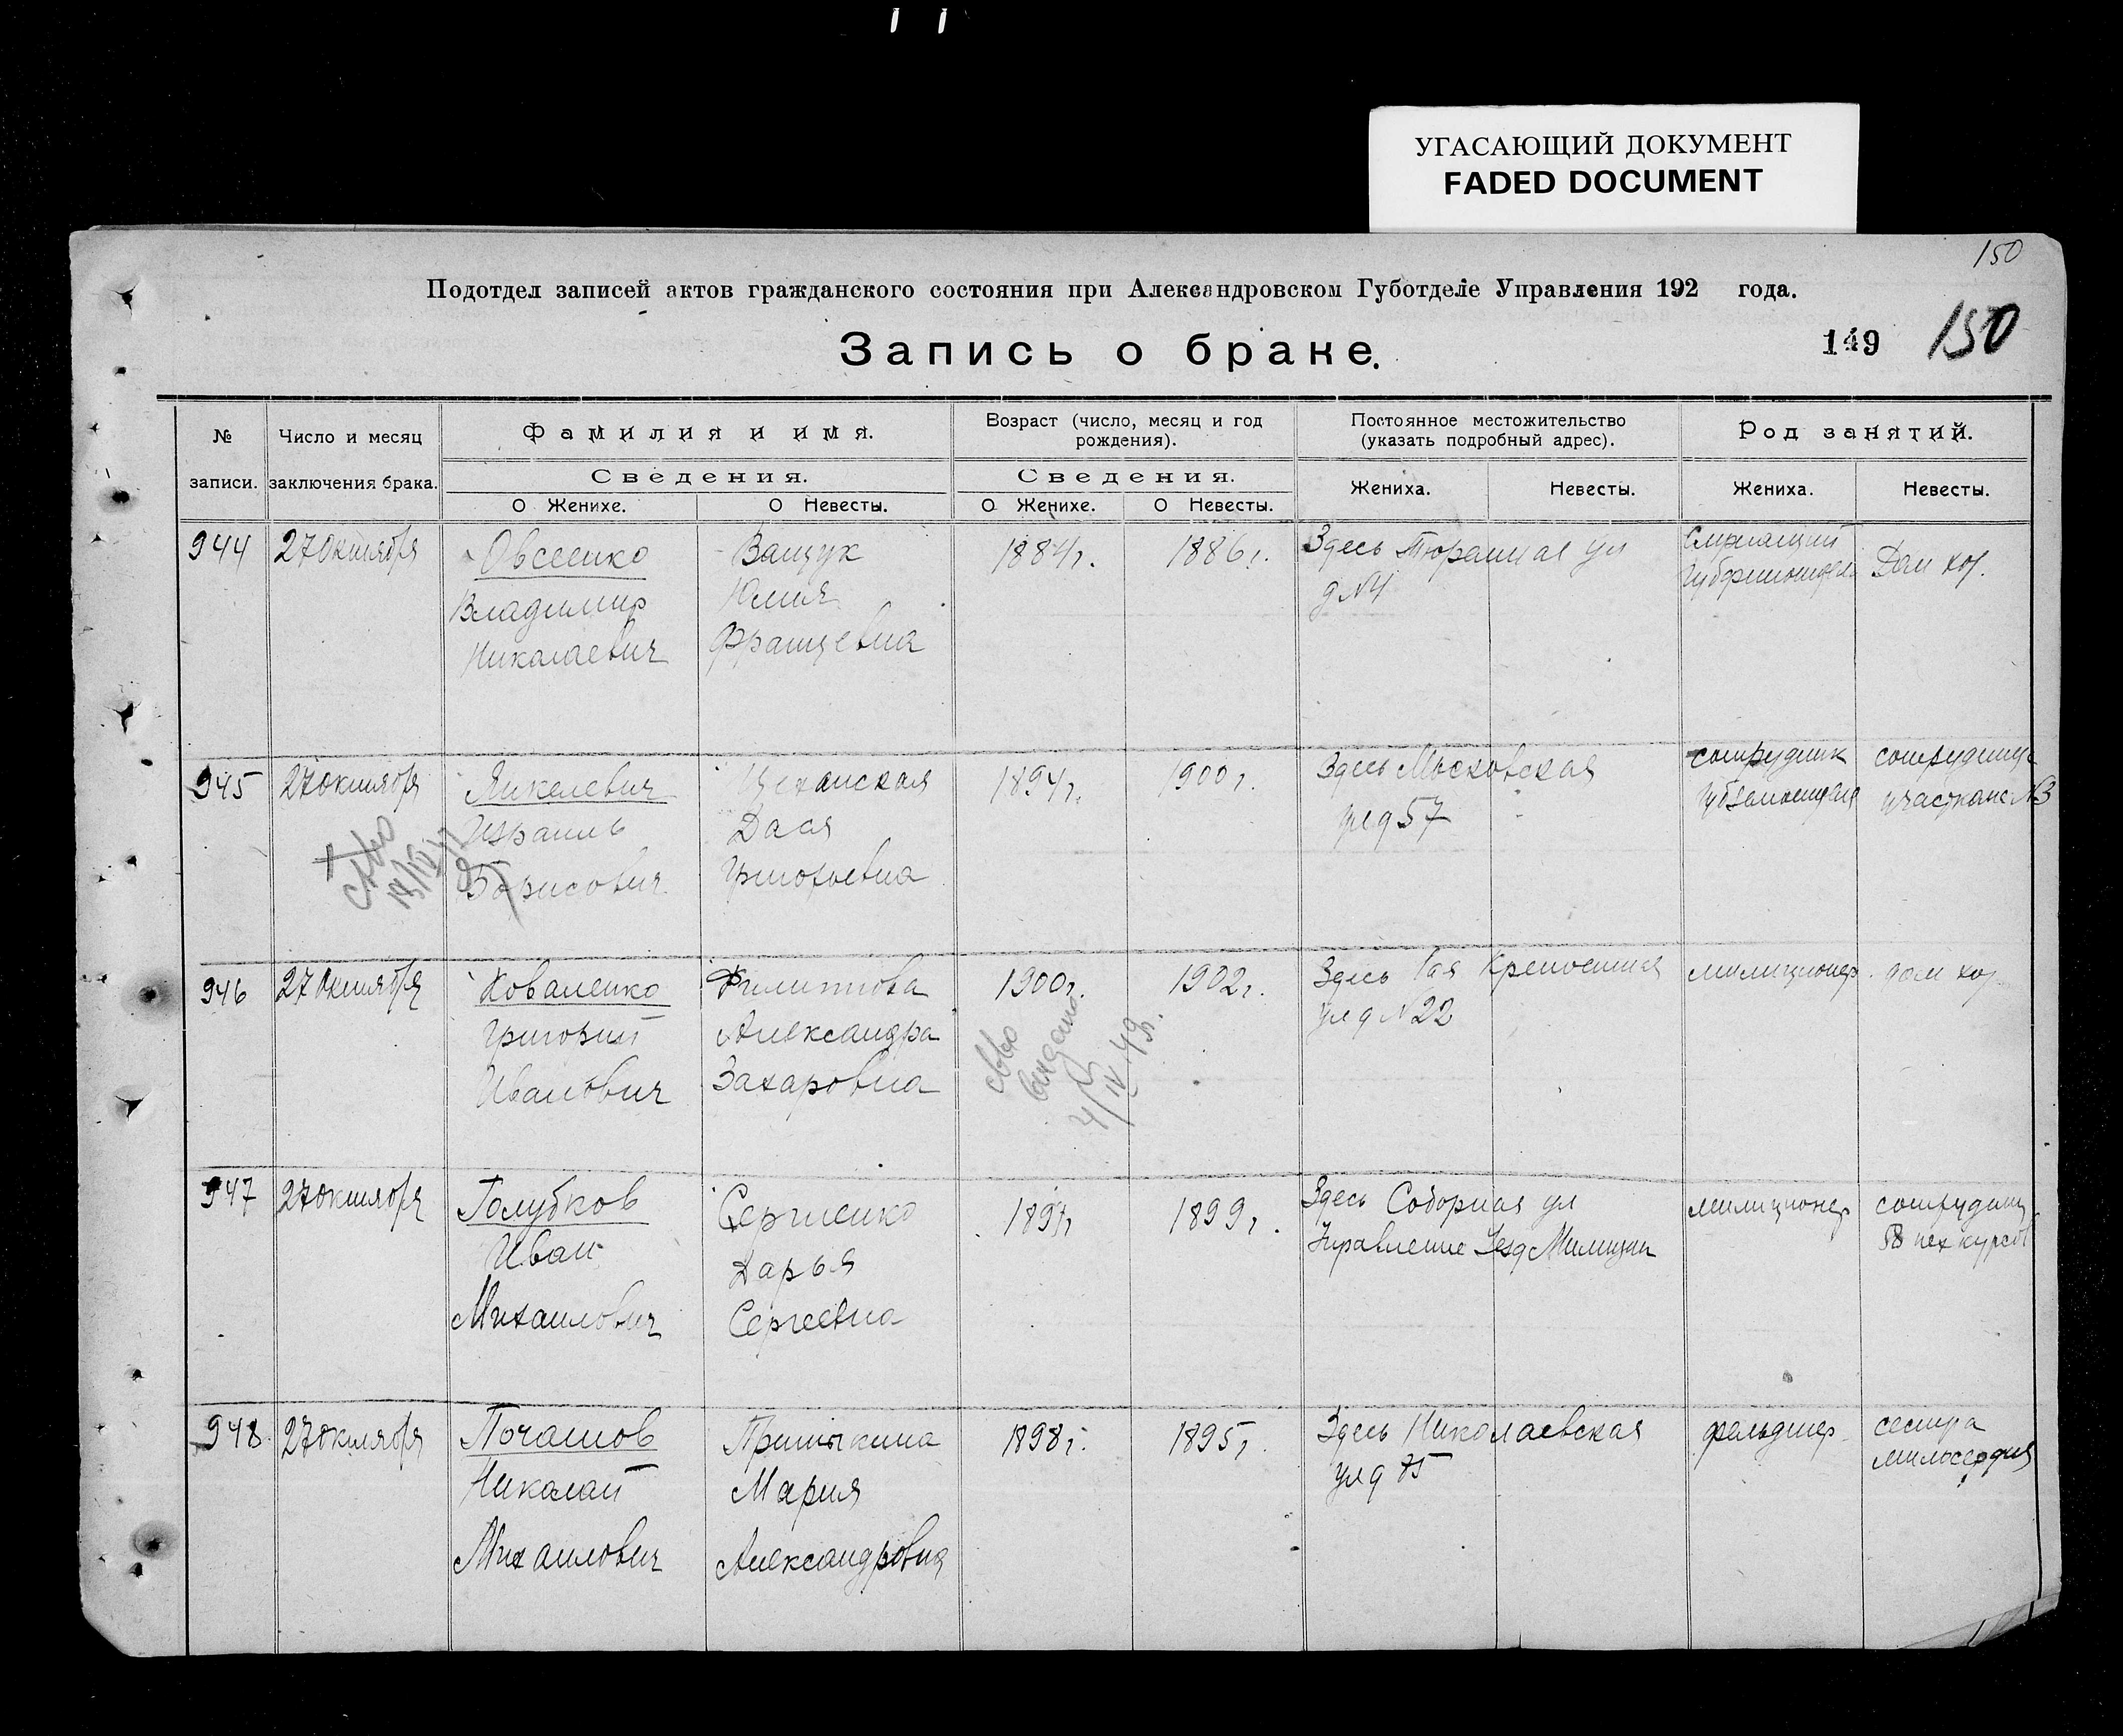 УГАСАЮЩИЙ ДОКУМЕНТ
FADED DOCUMENT
150
Подотдел записей актов гражданского состояния при Александровском Губотделе Управления 192 года.
Запись о браке.
149 150
№ записи.
Число и месяц заключения брака.
Фамилия и имя.
Сведения.
О Женихе.
О Невесты.
Возраст (число, месяц и год рождения).
Сведения.
О Женихе.
О Невесты.
Постоянное местожительство (указать подробный адрес).
Жениха.
Невесты.
Род занятий.
Жениха.
Невесты.
944
27 октября
Овсеенко
Владимир
Николаевич
Ващук
Юлия
Францевна
1884г.
1886г.
Здесь Тюремная ул
д №4
Служащий
Дом хоз.
945
27 октября
Янкелевич
Израиль
Борисович
Дася
Григорьевна
1894г.
1900г.
Здесь Московская
ул д 57
сотрудник
сотрудница
св-во
946
27 октября
Коваленко
Григорий
Иванович
Филиппова
Александра
Захаровна
1900г.
1902г.
св-во
выдано
4/IV 49г.
Здесь Крепостная
ул д №22
милиционер
дом хоз
947
27 октября
Голубков
Иван
Михайлович
Сергиенко
Дарья
Сергеевна
1899г.
Здесь Соборная ул
Управление Уезд Милиции
милиционер
сотрудниц
58 пех курсов
948
27 октября
Николай
Михайлович
Мария
Александровна
1898г.
1895г.
Здесь Николаевская
ул д 75
фельдшер
сестра
милосердия